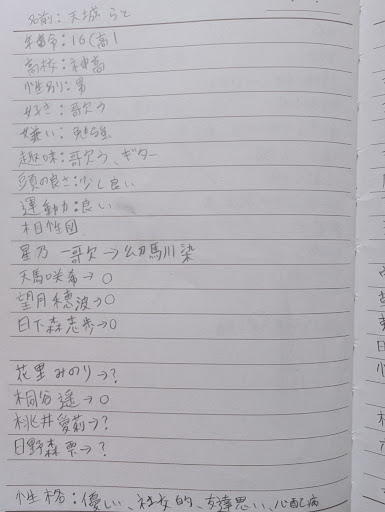 名前：天城らと
年齢：16(高1
高校：神高
性別：男
好き：歌う
嫌い：勉強
趣味：歌う、ギター
頭の良さ：少し良い
運動力：良い
相性図
星乃一歌→幼馬川染
天馬咲希→○
望月穂波→○
日下森志歩→○
花里みのり→?
桐谷遥→○
桃井愛莉→?
日野森雫→?
性格：優しい、社交的、友達思い、心配病